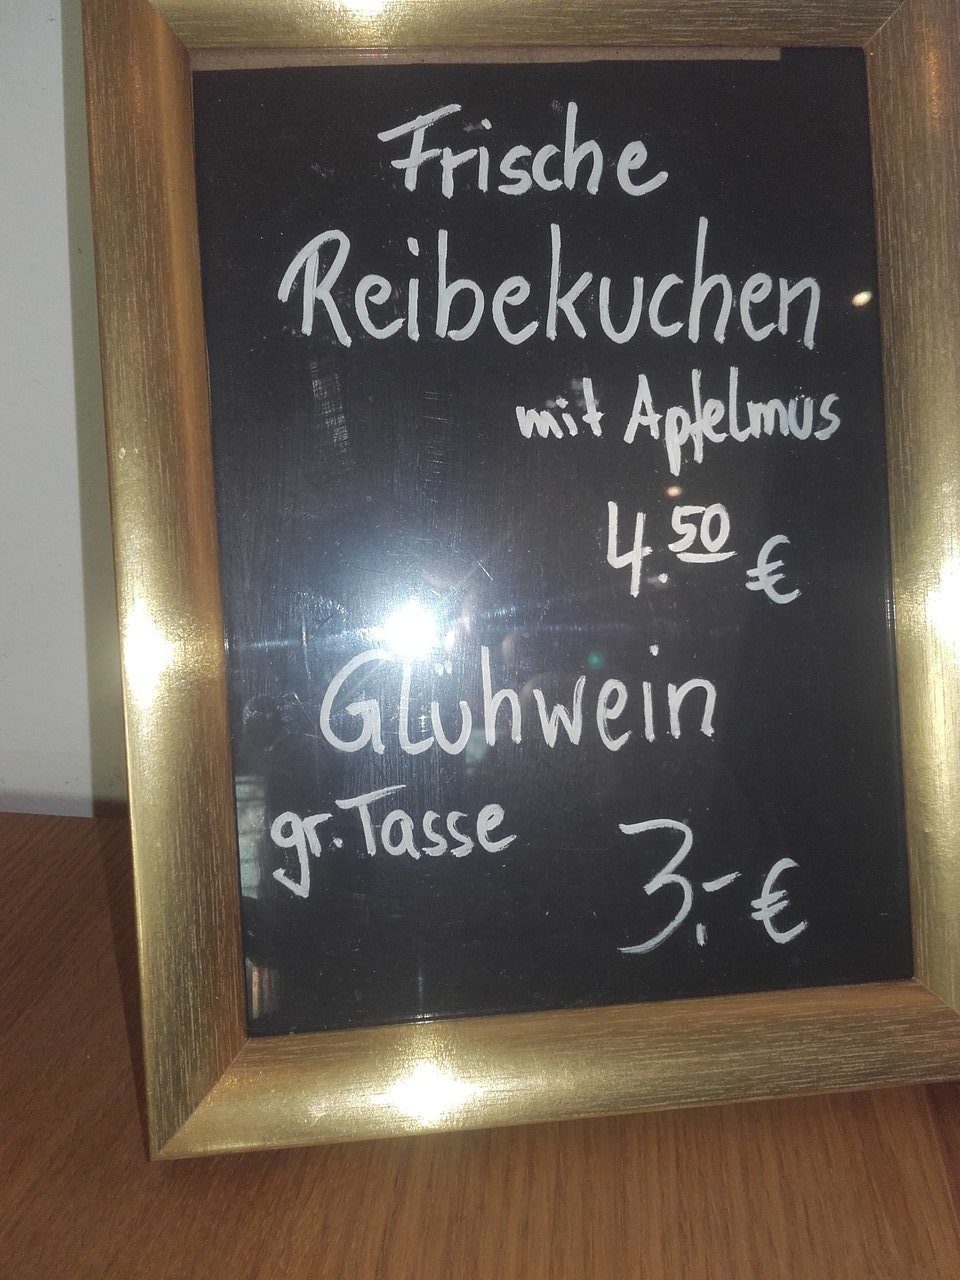 Frische
Reibekuchen
mit Apfelmus
4.50 €
Glühwein
gr. Tasse
3,- €